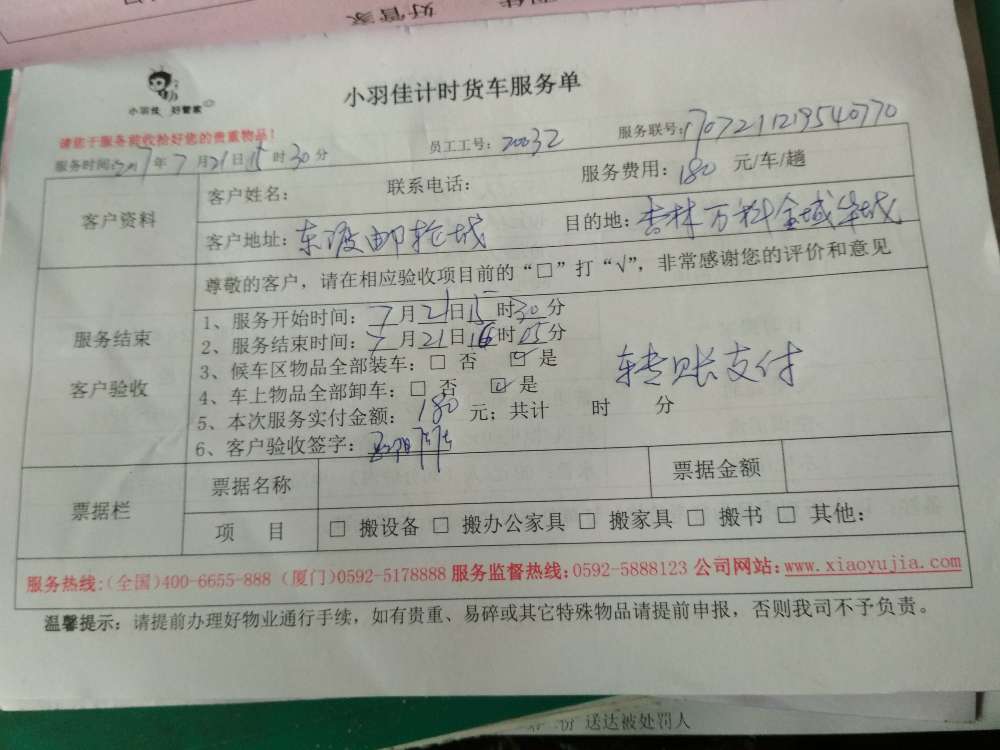 好管家
小羽佳 好管家
小羽佳计时货车服务单
请您于服务前收拾好您的贵重物品！
服务时间:2017年7月21日15时30分 员工工号：20032 服务联号:1707211219540770
客户资料
客户姓名： 联系电话： 服务费用：180 元/车/趟
客户地址：东渡邮轮城 目的地：杏林万科金域华城
尊敬的客户，请在相应验收项目前的“□”打“√”，非常感谢您的评价和意见
服务结束
客户验收
1、服务开始时间：7月21日15时30分
2、服务结束时间：7月21日16时05分
3、候车区物品全部装车：□ 否 ☑ 是
4、车上物品全部卸车：□ 否 ☑ 是
转账支付
5、本次服务实付金额：180 元；共计 时 分
6、客户验收签字：
票据栏
票据名称 票据金额
项 目 □ 搬设备 □ 搬办公家具 □ 搬家具 □ 搬书 □ 其他：
服务热线:(全国)400-6655-888 (厦门)0592-5178888 服务监督热线:0592-5888123 公司网站:www.xiaoyujia.com
温馨提示：请提前办理好物业通行手续，如有贵重、易碎或其它特殊物品请提前申报，否则我司不予负责。
份 送达被处罚人